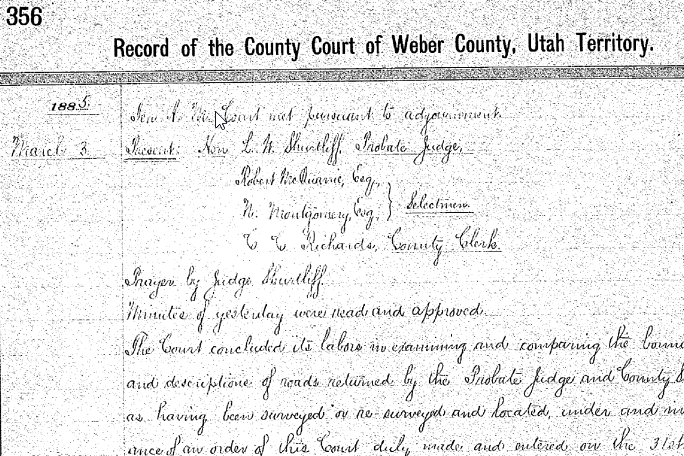 356
Record of the County Court of Weber County, Utah Territory.
1885.
Ten A. M. Court met pursuant to adjournment.
March 3
Present: Hon L. W. Shurtliff, Probate Judge,
Robert McQuarrie, Esq.,
N. Montgomery, Esq., } Selectmen.
C C Richards, County Clerk.
Prayer by Judge Shurtliff.
Minutes of yesterday were read and approved.
The Court concluded its labors in examining and comparing the
and descriptions of roads returned by the Probate Judge and County
as having been surveyed or re-surveyed and located, under and
of an order of this Court duly made and entered on the 31st